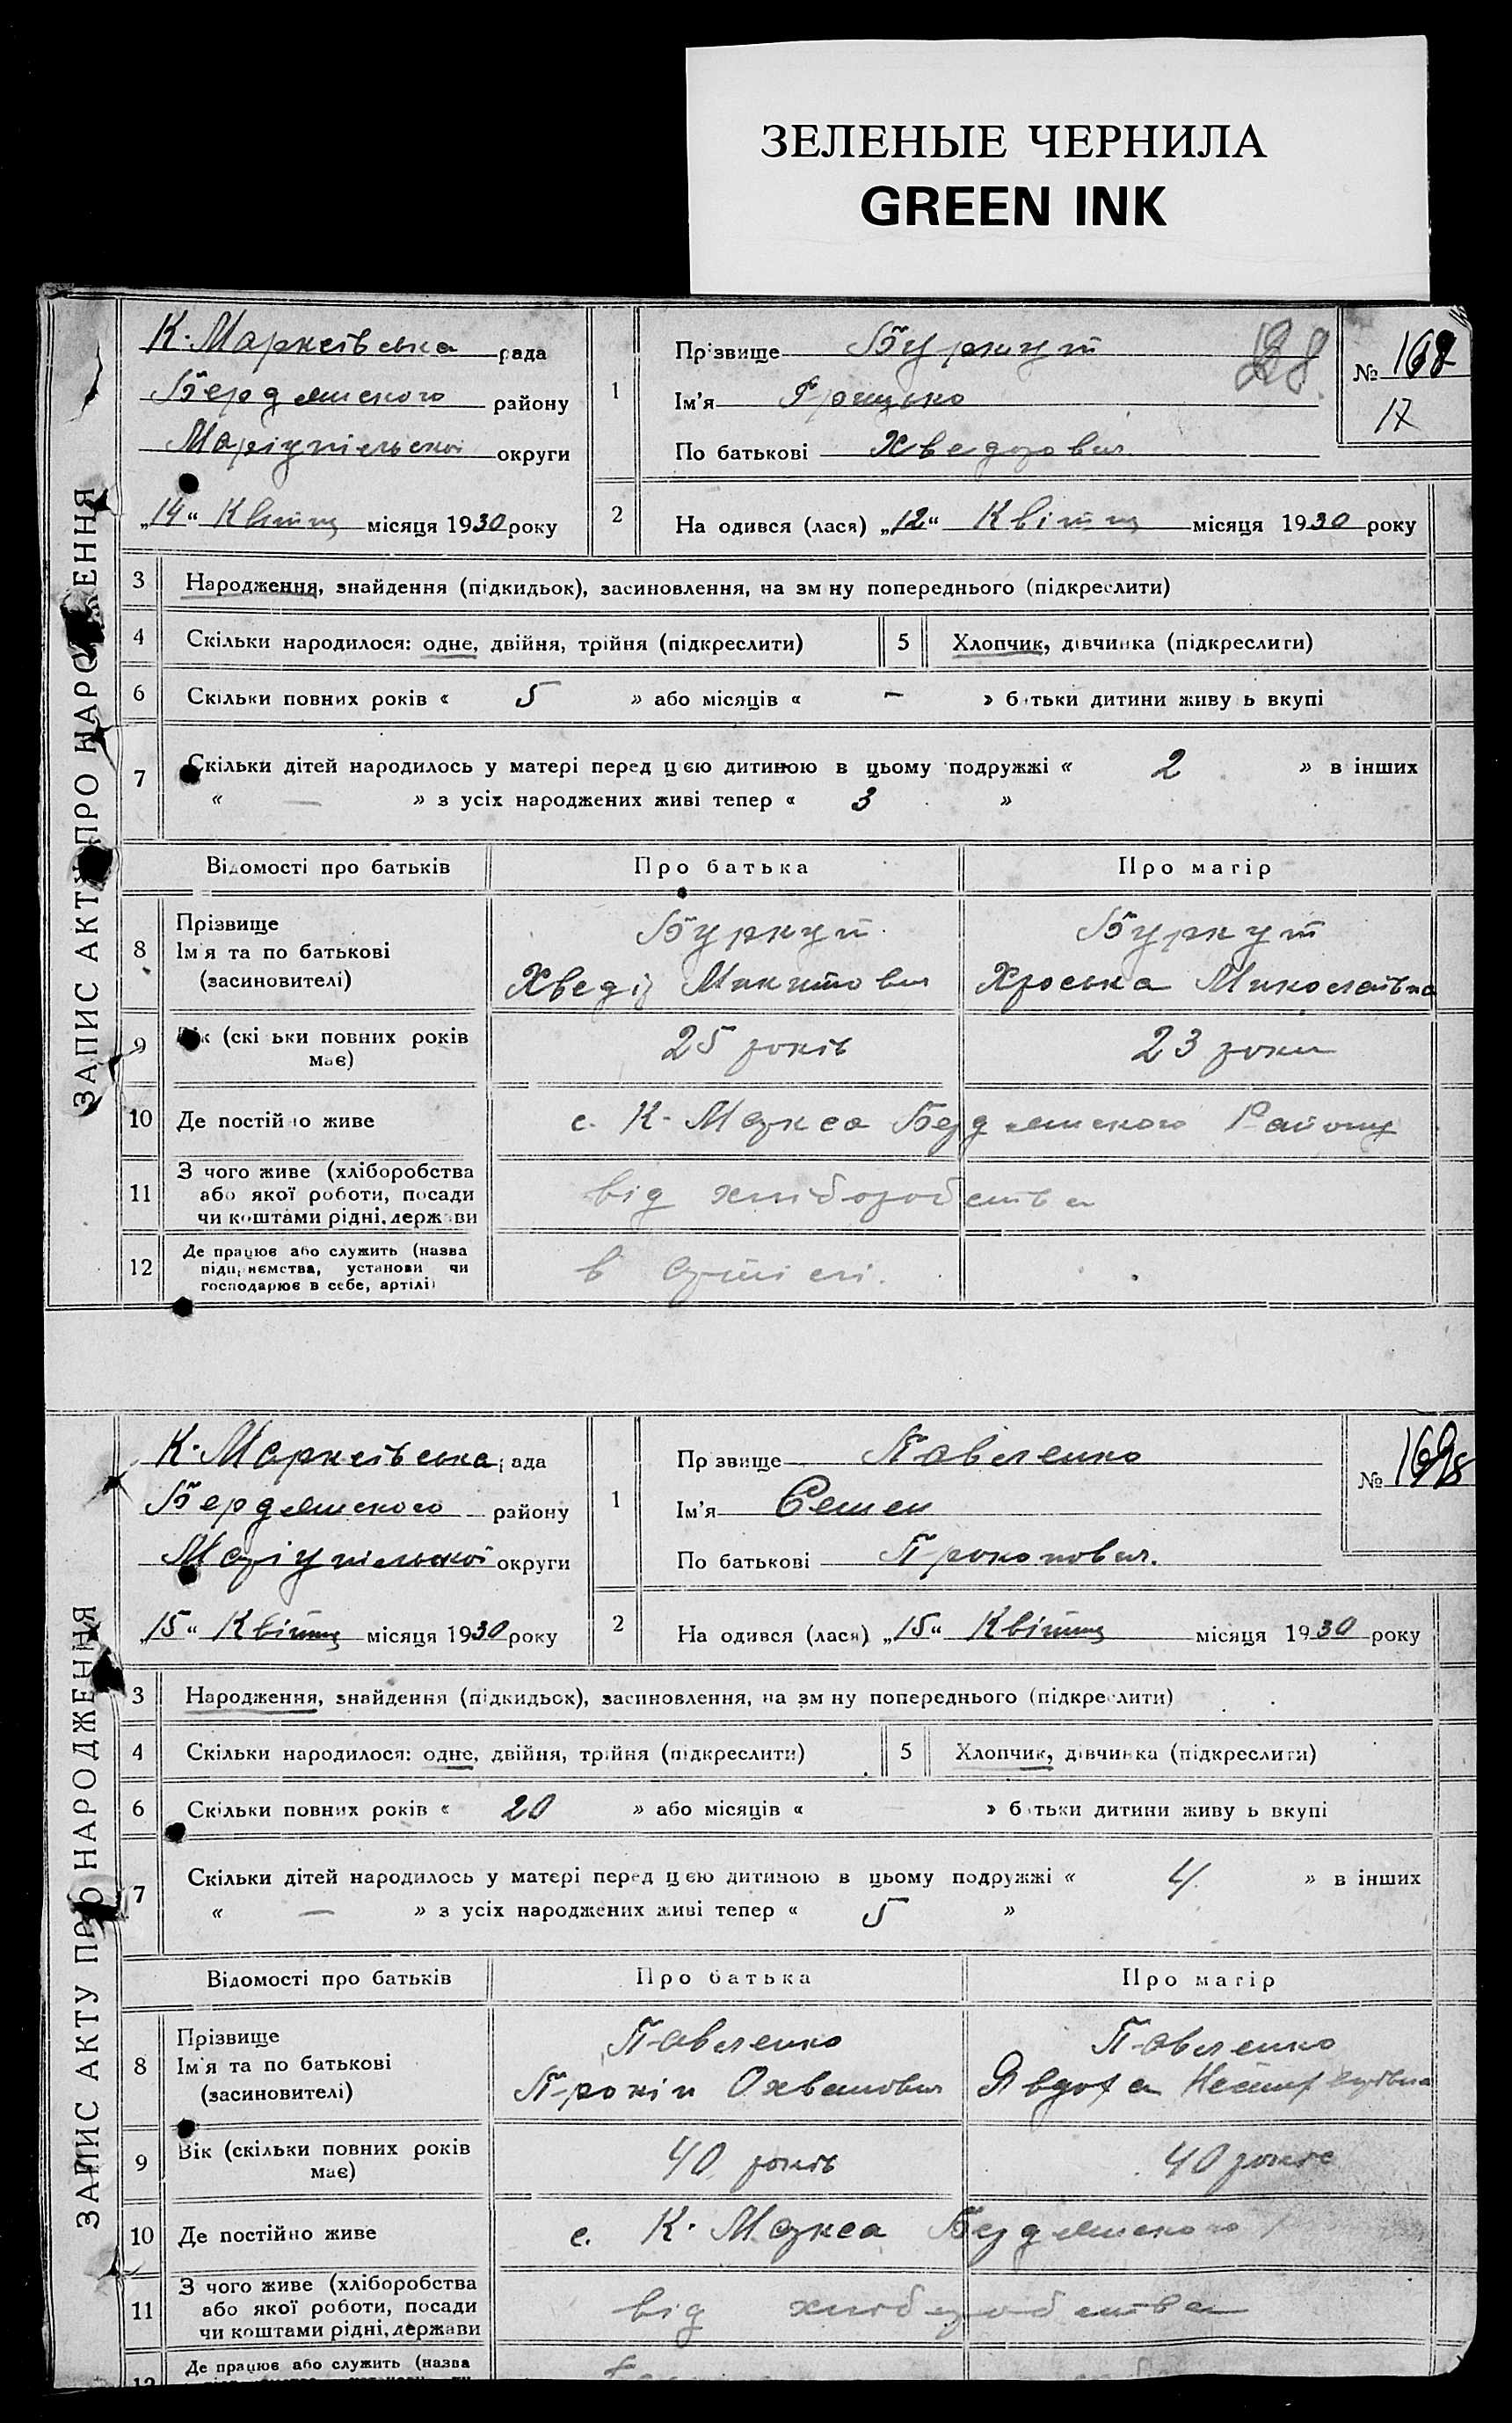 ЗЕЛЕНЫЕ ЧЕРНИЛА
GREEN INK
ЗАПИС АКТУ ПРО НАРОДЖЕННЯ
К. Марксівська рада
Бердянського району
Маріупільської округи
„14“ Квітня місяця 1930 року
1
Прізвище Буркут
Ім'я Грицько
По батькові Хведорович
№ 168
17
2
На одився (лася) „12“ Квітня місяця 1930 року
3 Народження, знайдення (підкидьок), засиновлення, на зм ну попереднього (підкреслити)
4 Скільки народилося: одне, двійня, трійня (підкреслити) 5 Хлопчик, дівчинка (підкреслити)
6 Скільки повних років « 5 » або місяців « – » б тьки дитини живу ь вкупі
7 Скільки дітей народилось у матері перед цією дитиною в цьому подружжі « 2 » в інших
« — » з усіх народжених живі тепер « 3 »
Відомості про батьків Про батька Про матір
8 Прізвище
Ім'я та по батькові
(засиновителі)
Буркут
Хведір Микитович
Буркут
Хроська Миколаївна
9 Вік (скі ьки повних років
має)
25 років 23 роки
10 Де постійно живе с. К. Маркса Бердянського Району
11 З чого живе (хліборобства
або якої роботи, посади
чи коштами рідні, держави
від хліборобства
12 Де працює або служить (назва
підприємства, установи чи
господарює в себе, артілі)
в артілі.
ЗАПИС АКТУ ПРО НАРОДЖЕННЯ
К. Марксівська рада
Бердянського району
Маріупільської округи
„15“ Квітня місяця 1930 року
1
Пр звище Павленко
Ім'я Семен
По батькові Прокопович.
№
2
На одився (лася) „15“ Квітня місяця 1930 року
3 Народження, знайдення (підкидьок), засиновлення, на зм ну попереднього (підкреслити)
4 Скільки народилося: одне, двійня, трійня (підкреслити) 5 Хлопчик, дівчинка (підкреслити)
6 Скільки повних років « 20 » або місяців « » б тьки дитини живу ь вкупі
7 Скільки дітей народилось у матері перед цією дитиною в цьому подружжі « 4 » в інших
« — » з усіх народжених живі тепер « 5 »
Відомості про батьків Про батька Про матір
8 Прізвище
Ім'я та по батькові
(засиновителі)
Павленко
Прокіп Охванович
Павленко
Явдоха
9 Вік (скільки повних років
має)
40 років 40 років
10 Де постійно живе с. К. Маркса Бердянського
11 З чого живе (хліборобства
або якої роботи, посади
чи коштами рідні, держави
від хліборобства
12 Де працює або служить (назва